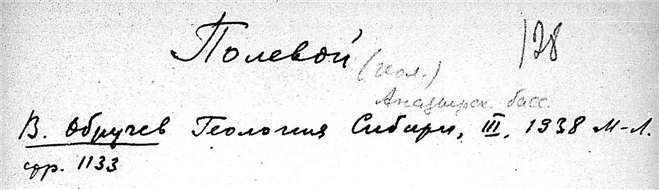 Полевой (геол.) 128
Анадырск. басс.
В. Обручев Геология Сибири, III, 1938 М-Л.
стр. 1133